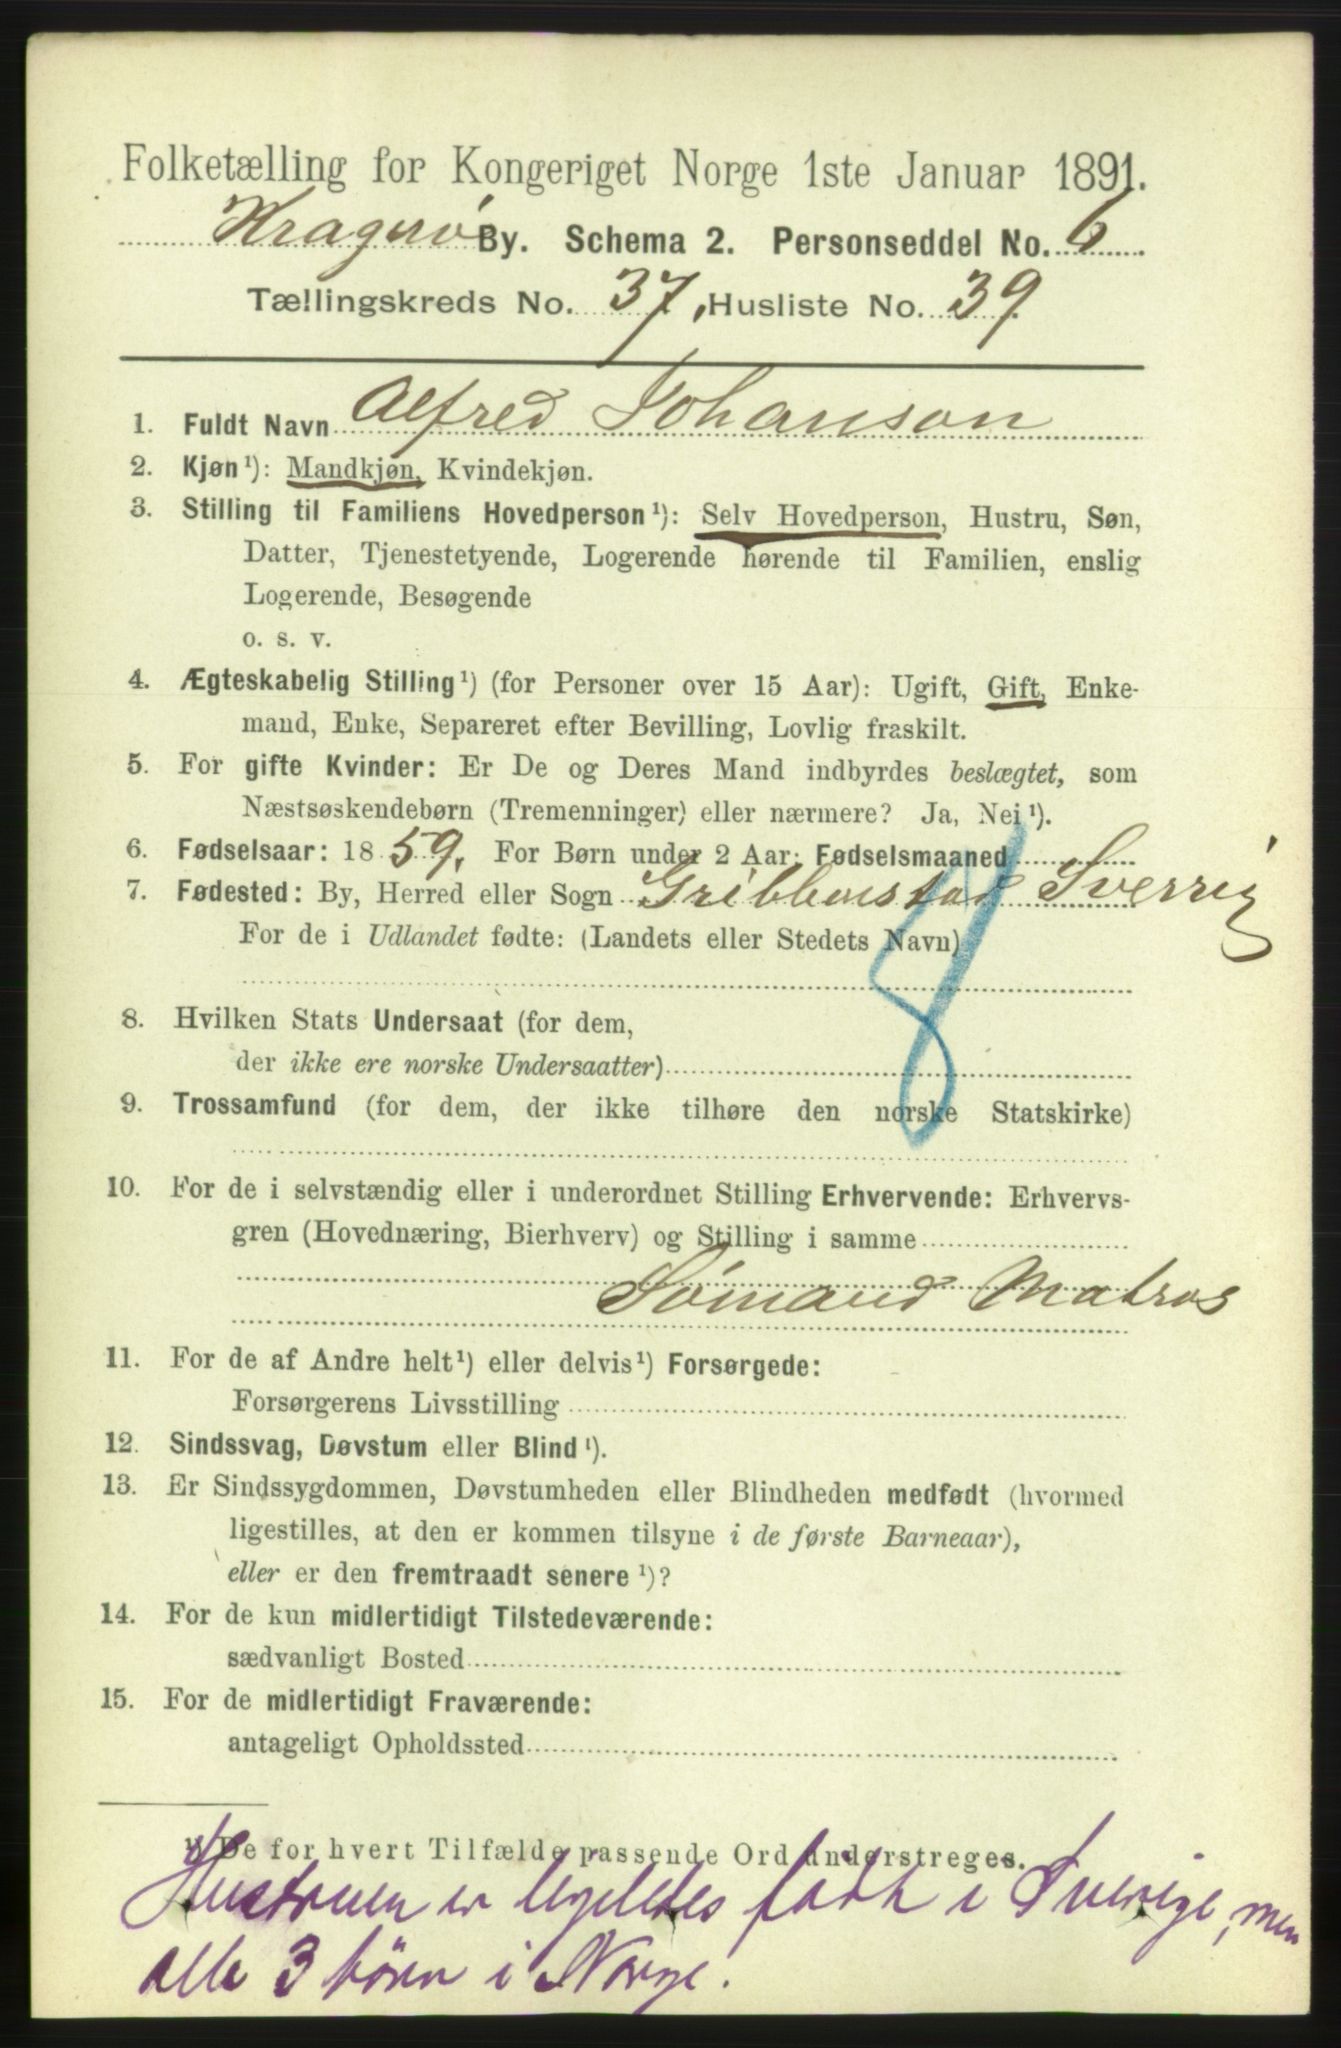 Folketælling for Kongeriget Norge 1ste Januar 1891.
Kragerø By. Schema 2. Personseddel No. 6
Tællingskreds No. 37, Husliste No. 39
1. Fuldt Navn Alfred Johanson
2. Kjøn¹): Mandkjøn, Kvindekjøn.
3. Stilling til Familiens Hovedperson¹): Selv Hovedperson, Hustru, Søn,
Datter, Tjenestetyende, Logerende hørende til Familien, enslig
Logerende, Besøgende
o. s. v.
4. Ægteskabelig Stilling¹) (for Personer over 15 Aar): Ugift, Gift, Enke-
mand, Enke, Separeret efter Bevilling, Lovlig fraskilt.
5. For gifte Kvinder: Er De og Deres Mand indbyrdes beslægtet, som
Næstsøskendebørn (Tremenninger) eller nærmere? Ja, Nei¹).
6. Fødselsaar: 1859. For Børn under 2 Aar: Fødselsmaaned
7. Fødested: By, Herred eller Sogn Gribbenstad Sverrig
For de i Udlandet fødte: (Landets eller Stedets Navn)
8. Hvilken Stats Undersaat (for dem,
der ikke ere norske Undersaatter)
9. Trossamfund (for dem, der ikke tilhøre den norske Statskirke)
10. For de i selvstændig eller i underordnet Stilling Erhvervende: Erhvervs-
gren (Hovednæring, Bierhverv) og Stilling i samme
Sømand Matros
11. For de af Andre helt¹) eller delvis¹) Forsørgede:
Forsørgerens Livsstilling
12. Sindssvag, Døvstum eller Blind¹).
13. Er Sindssygdommen, Døvstumheden eller Blindheden medfødt (hvormed
ligestilles, at den er kommen tilsyne i de første Barneaar),
eller er den fremtraadt senere¹)?
14. For de kun midlertidigt Tilstedeværende:
sædvanligt Bosted
15. For de midlertidigt Fraværende:
antageligt Opholdssted
¹) De for hvert Tilfælde passende Ord understreges.
Hustruen er ligeledes født i Sverige, men
alle 3 børn i Norge.